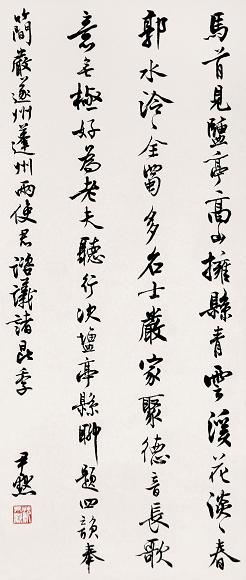 馬首見鹽亭高山擁縣青雲溪花淡〻春
郭水泠〻全蜀多名士嚴家聚德音長歌
意无極好為老夫聽行次鹽亭縣聊題四韻奉
簡嚴遂州蓬州兩使君諮議諸昆季
尹默